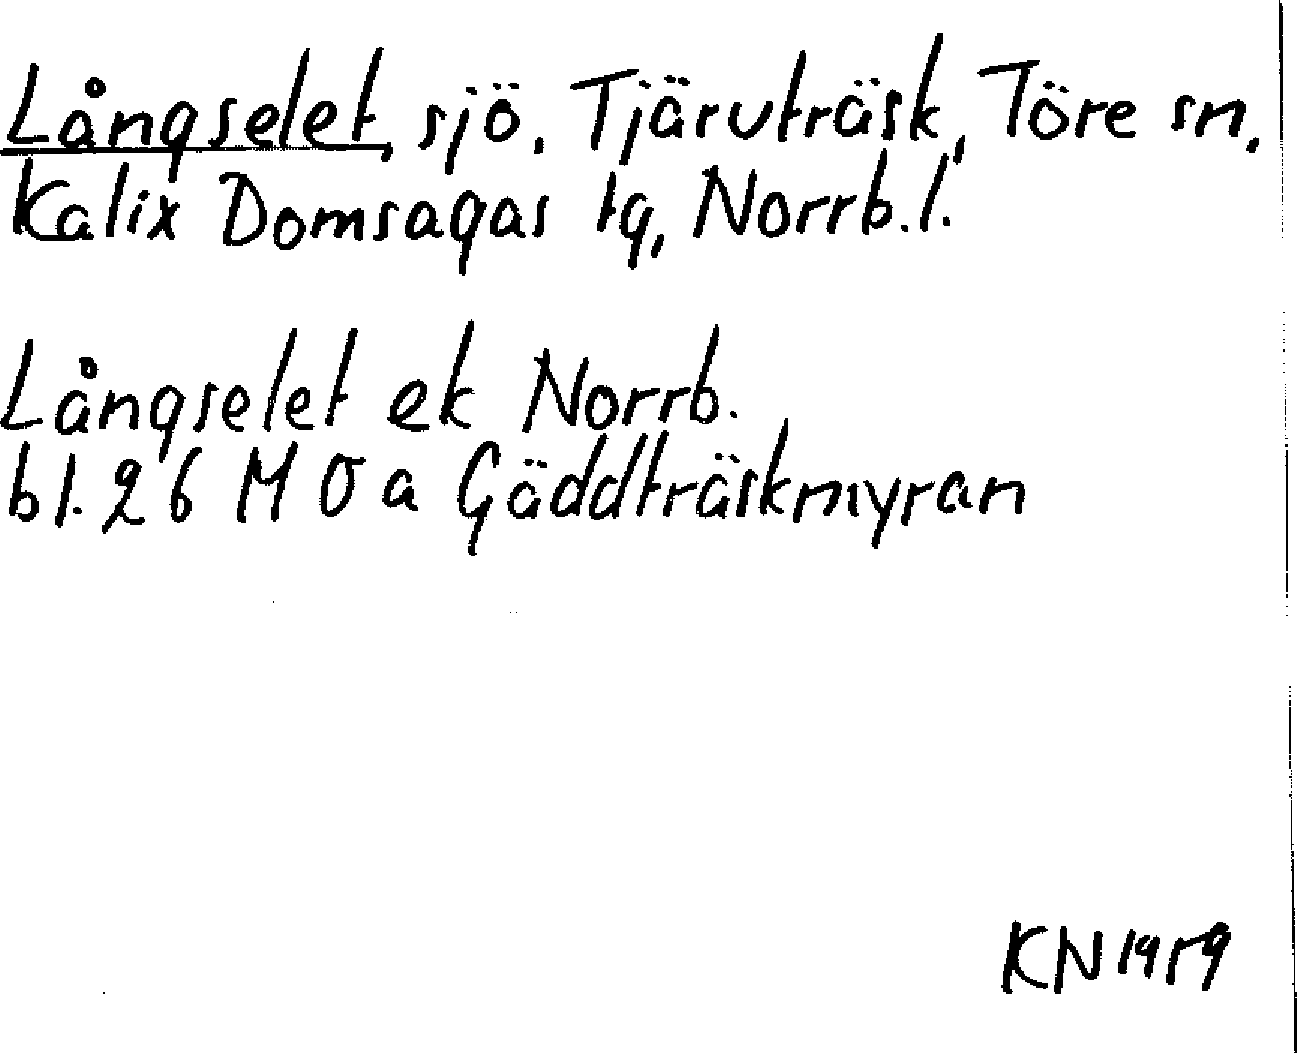 Långselet, sjö, Tjäruträsk, Töre sn,
Kalix Domsagas tg, Norrb.l.
Långselet ek Norrb.
bl. 26 M O a Gäddträskmyran
KN 1959